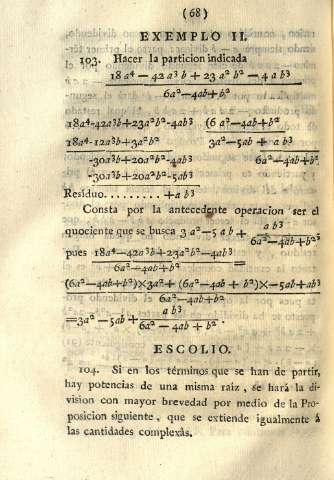 (68)
EXEMPLO II.
103. Hacer la particion indicada
18a⁴ — 42a³b + 23a²b² — 4ab³
6a² — 4ab + b²
18a⁴-42a³b+23a²b²-4ab³ (6a²-4ab+b²
18a⁴-12a³b+3a²b² 3a²-5ab + ab³
-30a³b+20a²b²-4ab³ 6a²-4ab+b²
-30a³b+20a²b²-5ab³
Residuo......... +ab³
Consta por la antecedente operacion ser el
quociente que se busca 3a²-5ab+ ab³
6a²-4ab+b²,
pues 18a⁴-42a³b+23a²b²-4ab³ =
6a²-4ab+b²
(6a²-4ab+b²)×3a²+(6a²-4ab+b²)×-5ab+ab³
6a²-4ab+b²
=3a²-5ab+ ab³
6a²-4ab+b².
ESCOLIO.
104. Si en los términos que se han de partir,
hay potencias de una misma raiz, se hará la di-
vision con mayor brevedad por medio de la Pro-
posicion siguiente, que se extiende igualmente á
las cantidades complexâs.